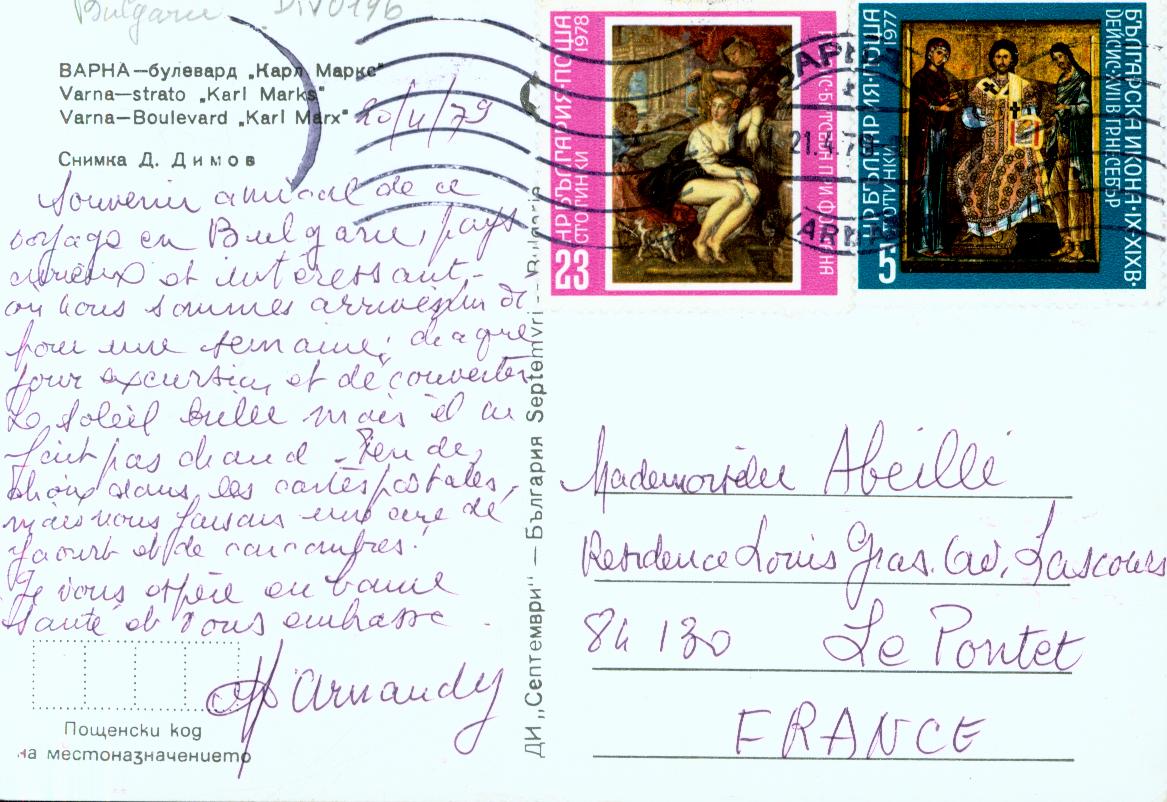 Bulgarie DIV0196
ВАРНА—булевард „Карл Маркс“
Varna—strato „Karl Marks“
Varna—Boulevard „Karl Marx“
20/4/79
Снимка Д. Димов
Souvenir amical de ce
voyage en Bulgarie, pays
curieux et intéressant-
ou nous sommes arrivés
pour une semaine; chaque
jour excursion, et découvertes
Le soleil brille mais il ne
fait pas chaud - Peu de
choix dans les cartes postales,
mais nous faisons une cure de
yaourt et de concombres!
Je vous espère en bonne
santé et vous embrasse.
Arnaudy
Пощенски код
на местоназначението
ДИ „Септември“ — България Septemvri — Bulgaria
НР БЪЛГАРИЯ·ПОЩА
1978
23 СТОТИНКИ
НР БЪЛГАРИЯ·ПОЩА
1977
5 СТОТИНКИ
БЪЛГАРСКА ИКОНА·IX-XIXВ·
ДЕЙСИС·XVIIВ ГР НЕСЕБЪР
21.4.79
Mademoiselle Abeille
Residence Louis Gras. av. Lascours
84 130 Le Pontet
FRANCE